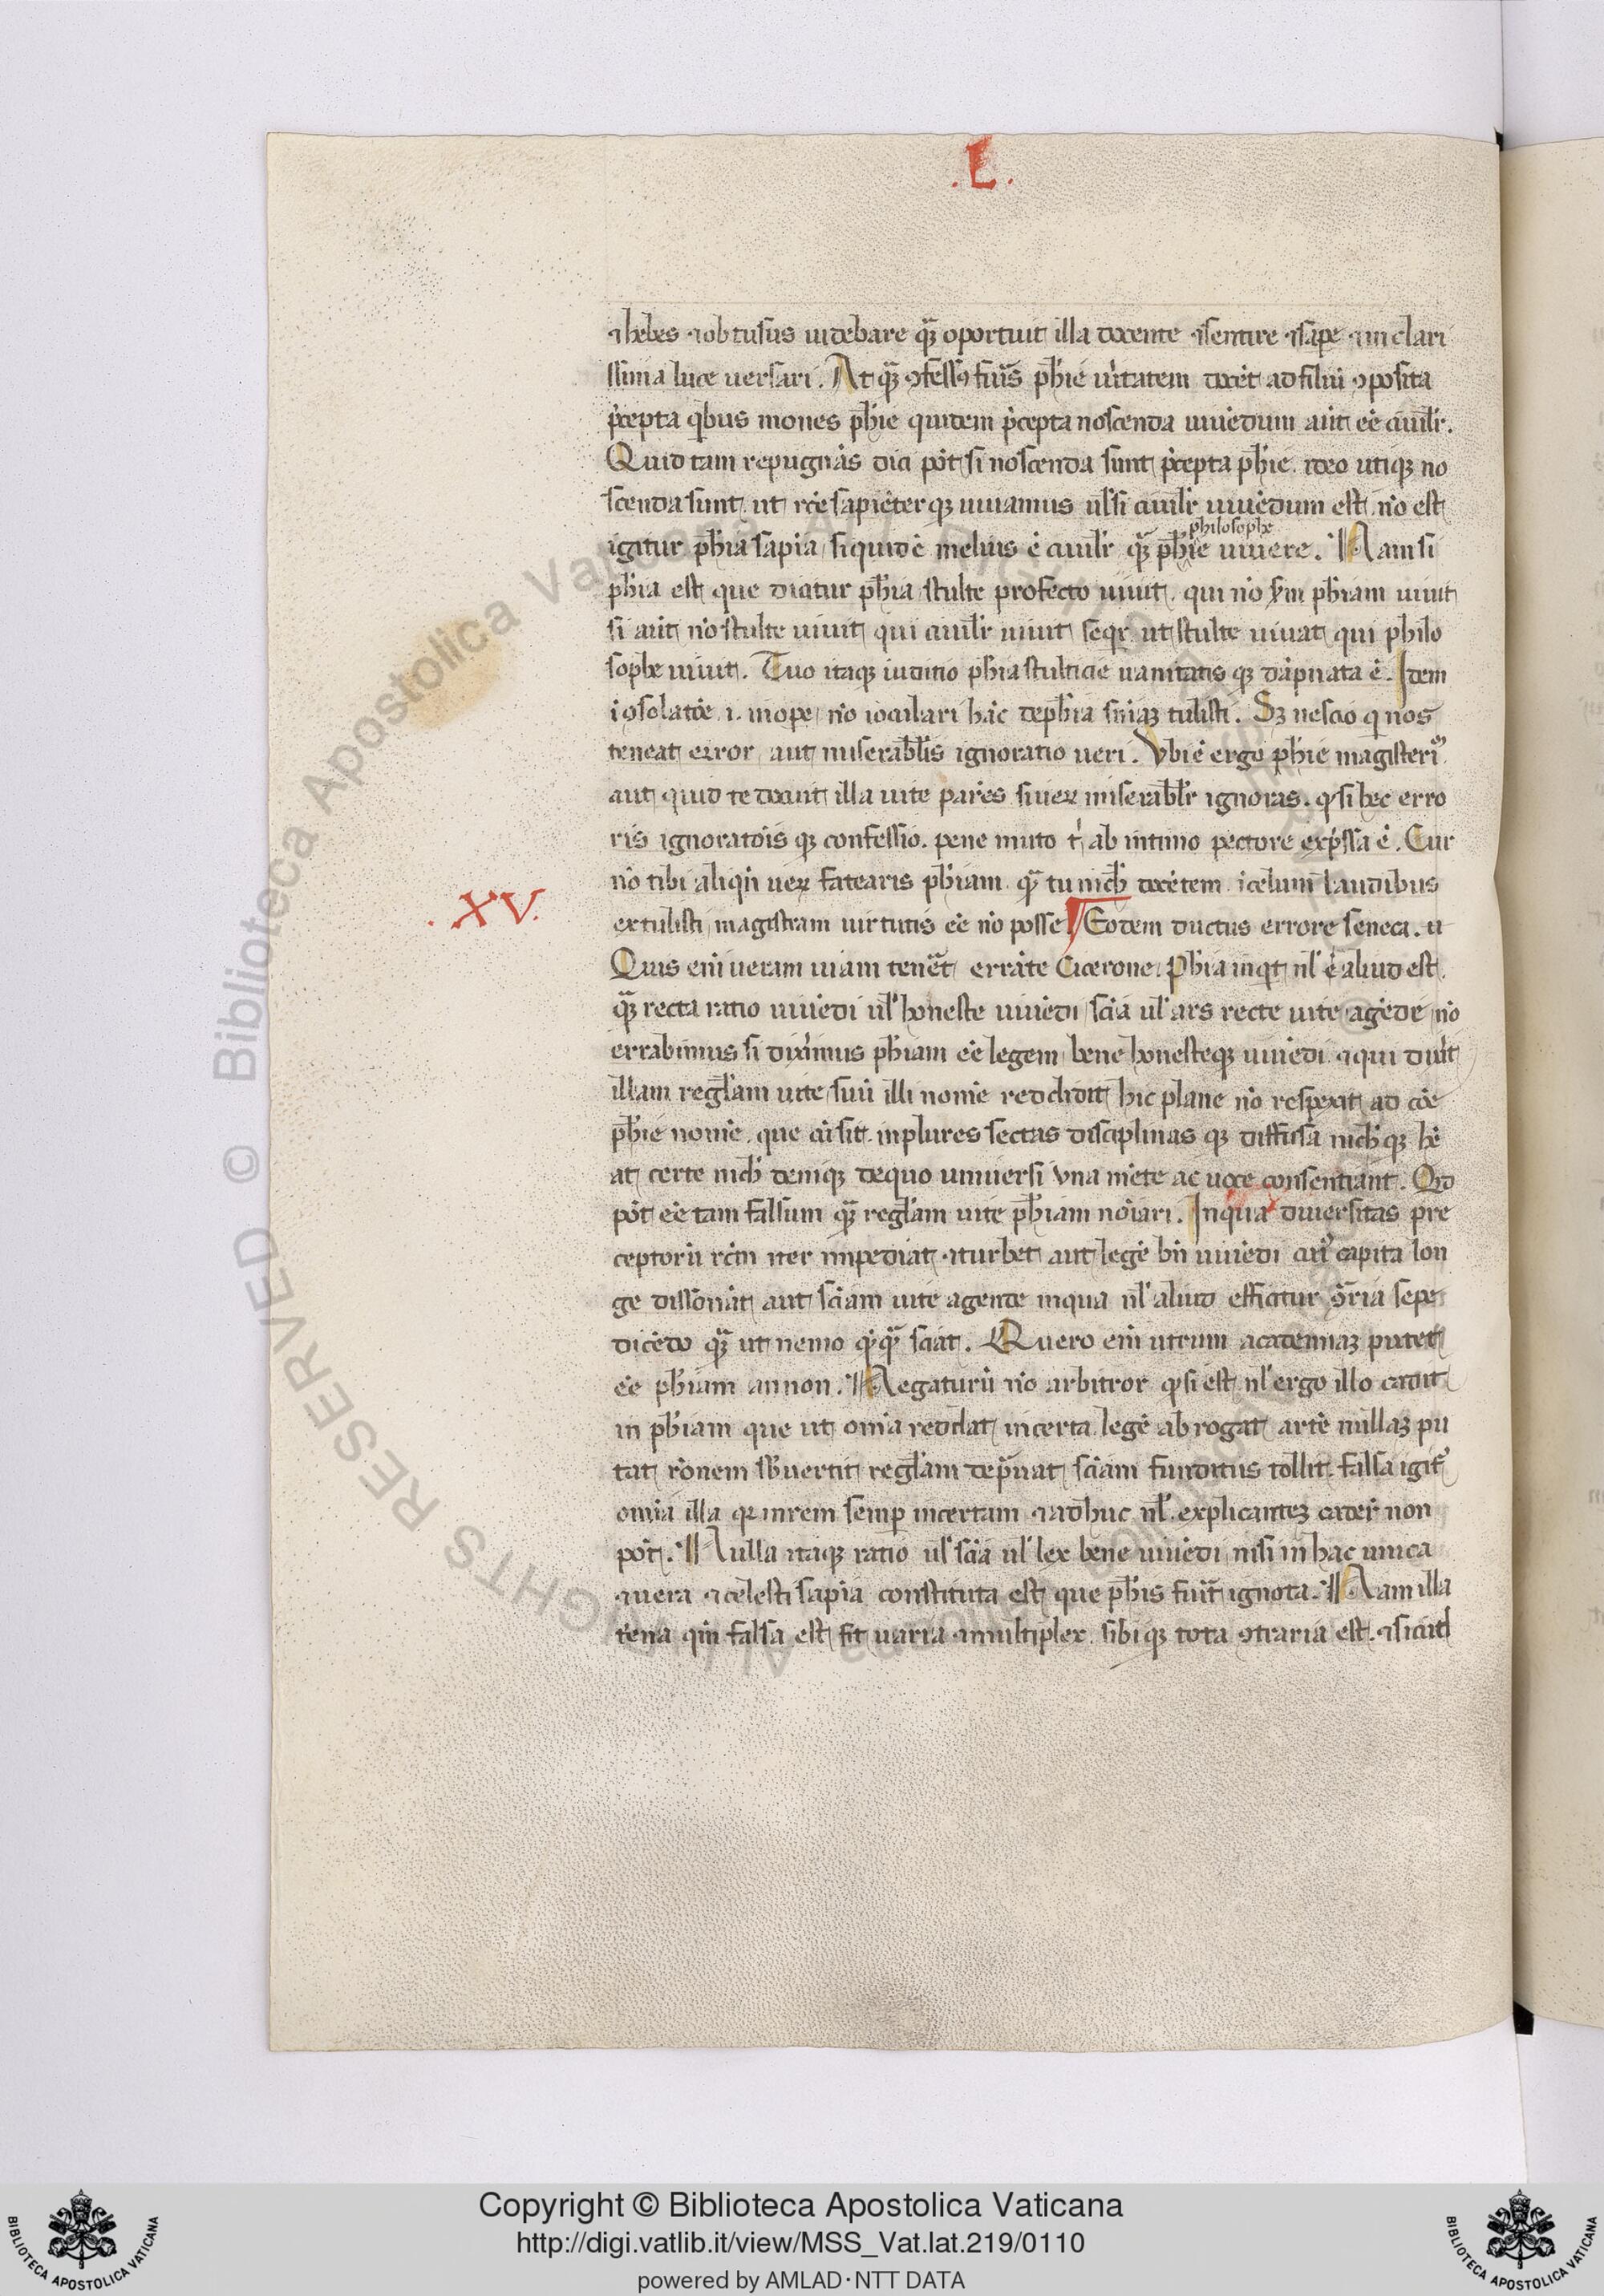 .L.
⁊ hebes ⁊ obtusus uidebare qȝ̃ oportuit illa docente ⁊ sentire ⁊ sape̲ ⁊ in clari
ssima luce uersari. At qȝ̃ ꝯfessꝰ fuĩs ph̃ie ũitatem docẽt ad filiũ ꝯposita
p̃cepta qbus mones ph̃ie quidem p̃cepta noscenda uiuẽdum aũt eẽ ciuilr̃.
Quid tam repugnãs dici põt si noscenda sunt p̃cepta ph̃ie. ideo utiqȝ no
scenda sunt ut rc̃e sapiẽterqȝ uiuamus ul̃ si ciuilr̃ uiuẽdum est nõ est
philosophe
igitur ph̃ia sapĩa, siquidẽ melius ẽ ciuilr̃ qȝ̃ ph̃ie uiuere. Nam si
ph̃ia est que dicitur ph̃ia stulte profecto uiuit, qui nõ sm̃ ph̃iam uiuit
si aũt nõ stulte uiuit qui ciuilr̃ uiuit seqr̃ ut stulte uiuat qui philo
sophe uiuit. Tuo itaqȝ iuditio ph̃ia stulticie uanitatisqȝ dãpnata ẽ. Idem
i ꝯsolatõe .i. inope, nõ ioculari hãc de ph̃ia sñiaȝ tulisti. Sȝ nescio q nos
teneat error, aut miserabl̃is ignoratio ueri. Vbi ẽ ergo ph̃ie magisteriũ
aut quid te docuit illa uite parẽs si ueꝝ miserablr̃ ignoras. qͥ si hec erro
ris ignoratõisqȝ confessio. pene inuito t̃ ab intimo pectore exp̃ssa ẽ. Cur
nõ tibi aliqñ ueꝝ fatearis ph̃iam qȝ̃ tu nich̃ docẽtem icelum laudibus
.XV.
extulisti, magistram uirtutis eẽ nõ posse. Eodem ductus errore seneca. u
Quis em̃ ueram uiam tenẽt errãte Cicerone. Ph̃ia inqt nl̃ ẽ aliud est
qȝ̃ recta ratio uiuẽdi ul̃ honeste uiuẽdi scĩa ul̃ ars recte uite agẽde nõ
errabimus si dixĩmus ph̃iam eẽ legem bene honesteqȝ uiuẽdi ⁊ qui dix̃it
illam regl̃am uite, suũ illi nomẽ reddidit hic plane nõ respexit ad cõe
ph̃ie nomẽ, que cũ sit in plures sectas disciplinasqȝ diffusa nich̃qȝ hẽ
at certe nich̃ deniqȝ de quo uniuersi vna mẽte ac uoce consentiant. Qd
põt eẽ tam falsum qȝ̃ regl̃am uite ph̃iam nõiari. In qua diuersitas pre
ceptorũ rc̃m iter impediat ⁊ turbet aut legẽ bñ uiuẽdi cuiꝰ capita lon
ge dissonãt aut scĩam uite agende in qua nl̃ aliud efficitur ꝯ̃ria sepe
dicẽdo qȝ̃ ut nemo qͥqȝ̃ sciat. Quero em̃ utrum academiaȝ putet
eẽ ph̃iam annon. Negaturũ nõ arbitror qͥ si est nl̃ ergo illo cadit
in ph̃iam que ut om̃ia reddat incerta legẽ abrogat artẽ nullaȝ pu
tat rõnem sb̃uertit regl̃am dep̃uat scĩam funditus tollit. falsa igiť
om̃ia illa qꝛ in rem semp̱ incertam ⁊ adhuc nl̃ explicanteȝ cadeř non
põt. Nulla itaqȝ ratio ul̃ scĩa ul̃ lex bene uiuẽdi nisi in hac unica
⁊ uera ⁊ celesti sapĩa constituta est que ph̃is fuẽt ignota. Nam illa
tẽna qm̃ falsa est fit uaria ⁊ multiplex, sibiqȝ tota ꝯtraria est. ⁊ sicut
Copyright © Biblioteca Apostolica Vaticana
http://digi.vatlib.it/view/MSS_Vat.lat.219/0110
powered by AMLAD·NTT DATA